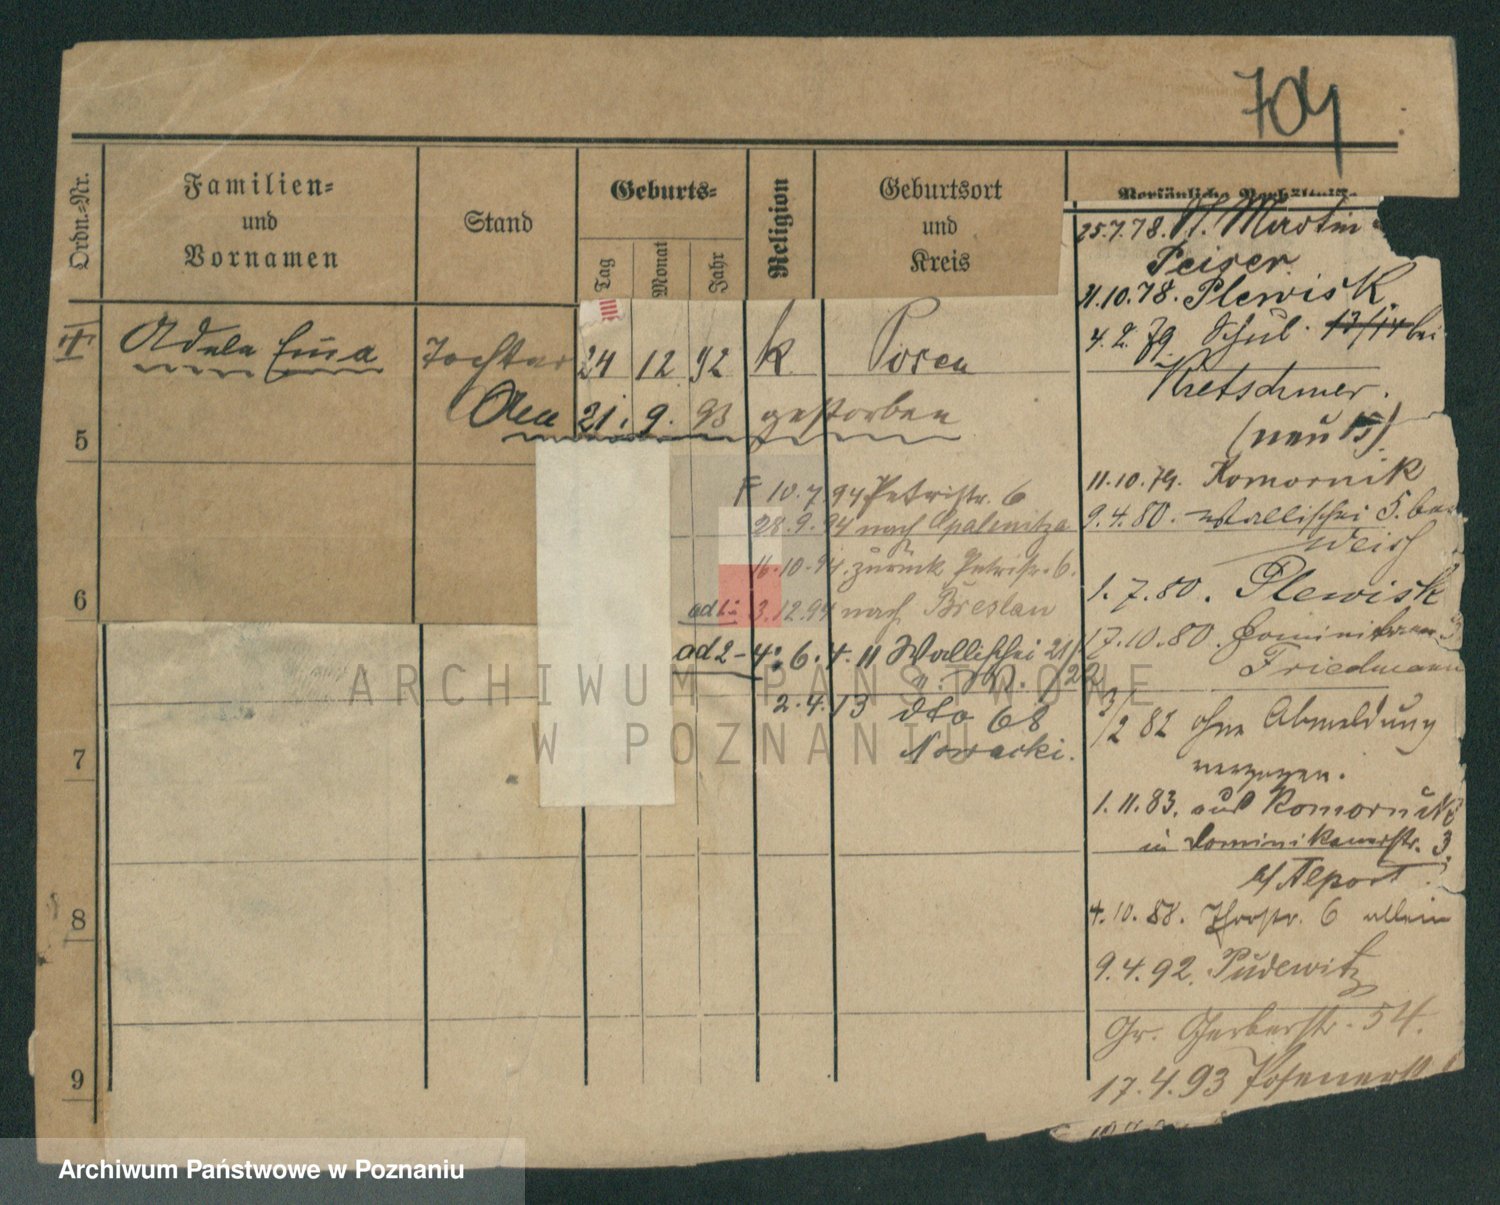 704
Ordn.-Nr.
Familien-
und
Vornamen
Stand
Geburts-
Tag
Monat
Jahr
Religion
Geburtsort
und
Kreis
Persönliche Verhältnis-
Adela
Tochter
24 12 92
k
Posen
Den 21. 9. 93 gestorben
5
6
7
8
9
10.7.94 Petristr. 6
28.9.94 nach Opalenitza
16.10.94. zurück Petristr. 6.
ad 1: 3.12.94 nach Breslau
ad 2-4: 6.4.11 Wallischei 21/22
2.4.13 dto 68
Nowacki.
25.7.78. St. Martin
Peiser.
11.10.78. Plewisk.
4.2.79. Schul. 13/14 bei
Kretschmer.
(neu 15)
11.10.79. Komornik
9.4.80. Wallischei 5. bei
Weich
1.7.80. Plewisk
17.10.80. Dominikaner 3
Friedmann
3/2 82 ohne Abmeldung
verzogen.
1.11.83. aus Komornik
in Dominikanerstr. 3.
b/ Alport
4.10.88. Thorstr. 6 allein
9.4.92. Pudewitz
Gr. Gerberstr. 54.
17.4.93 Posenerst
ARCHIWUM PAŃSTWOWE
W POZNANIU
Archiwum Państwowe w Poznaniu